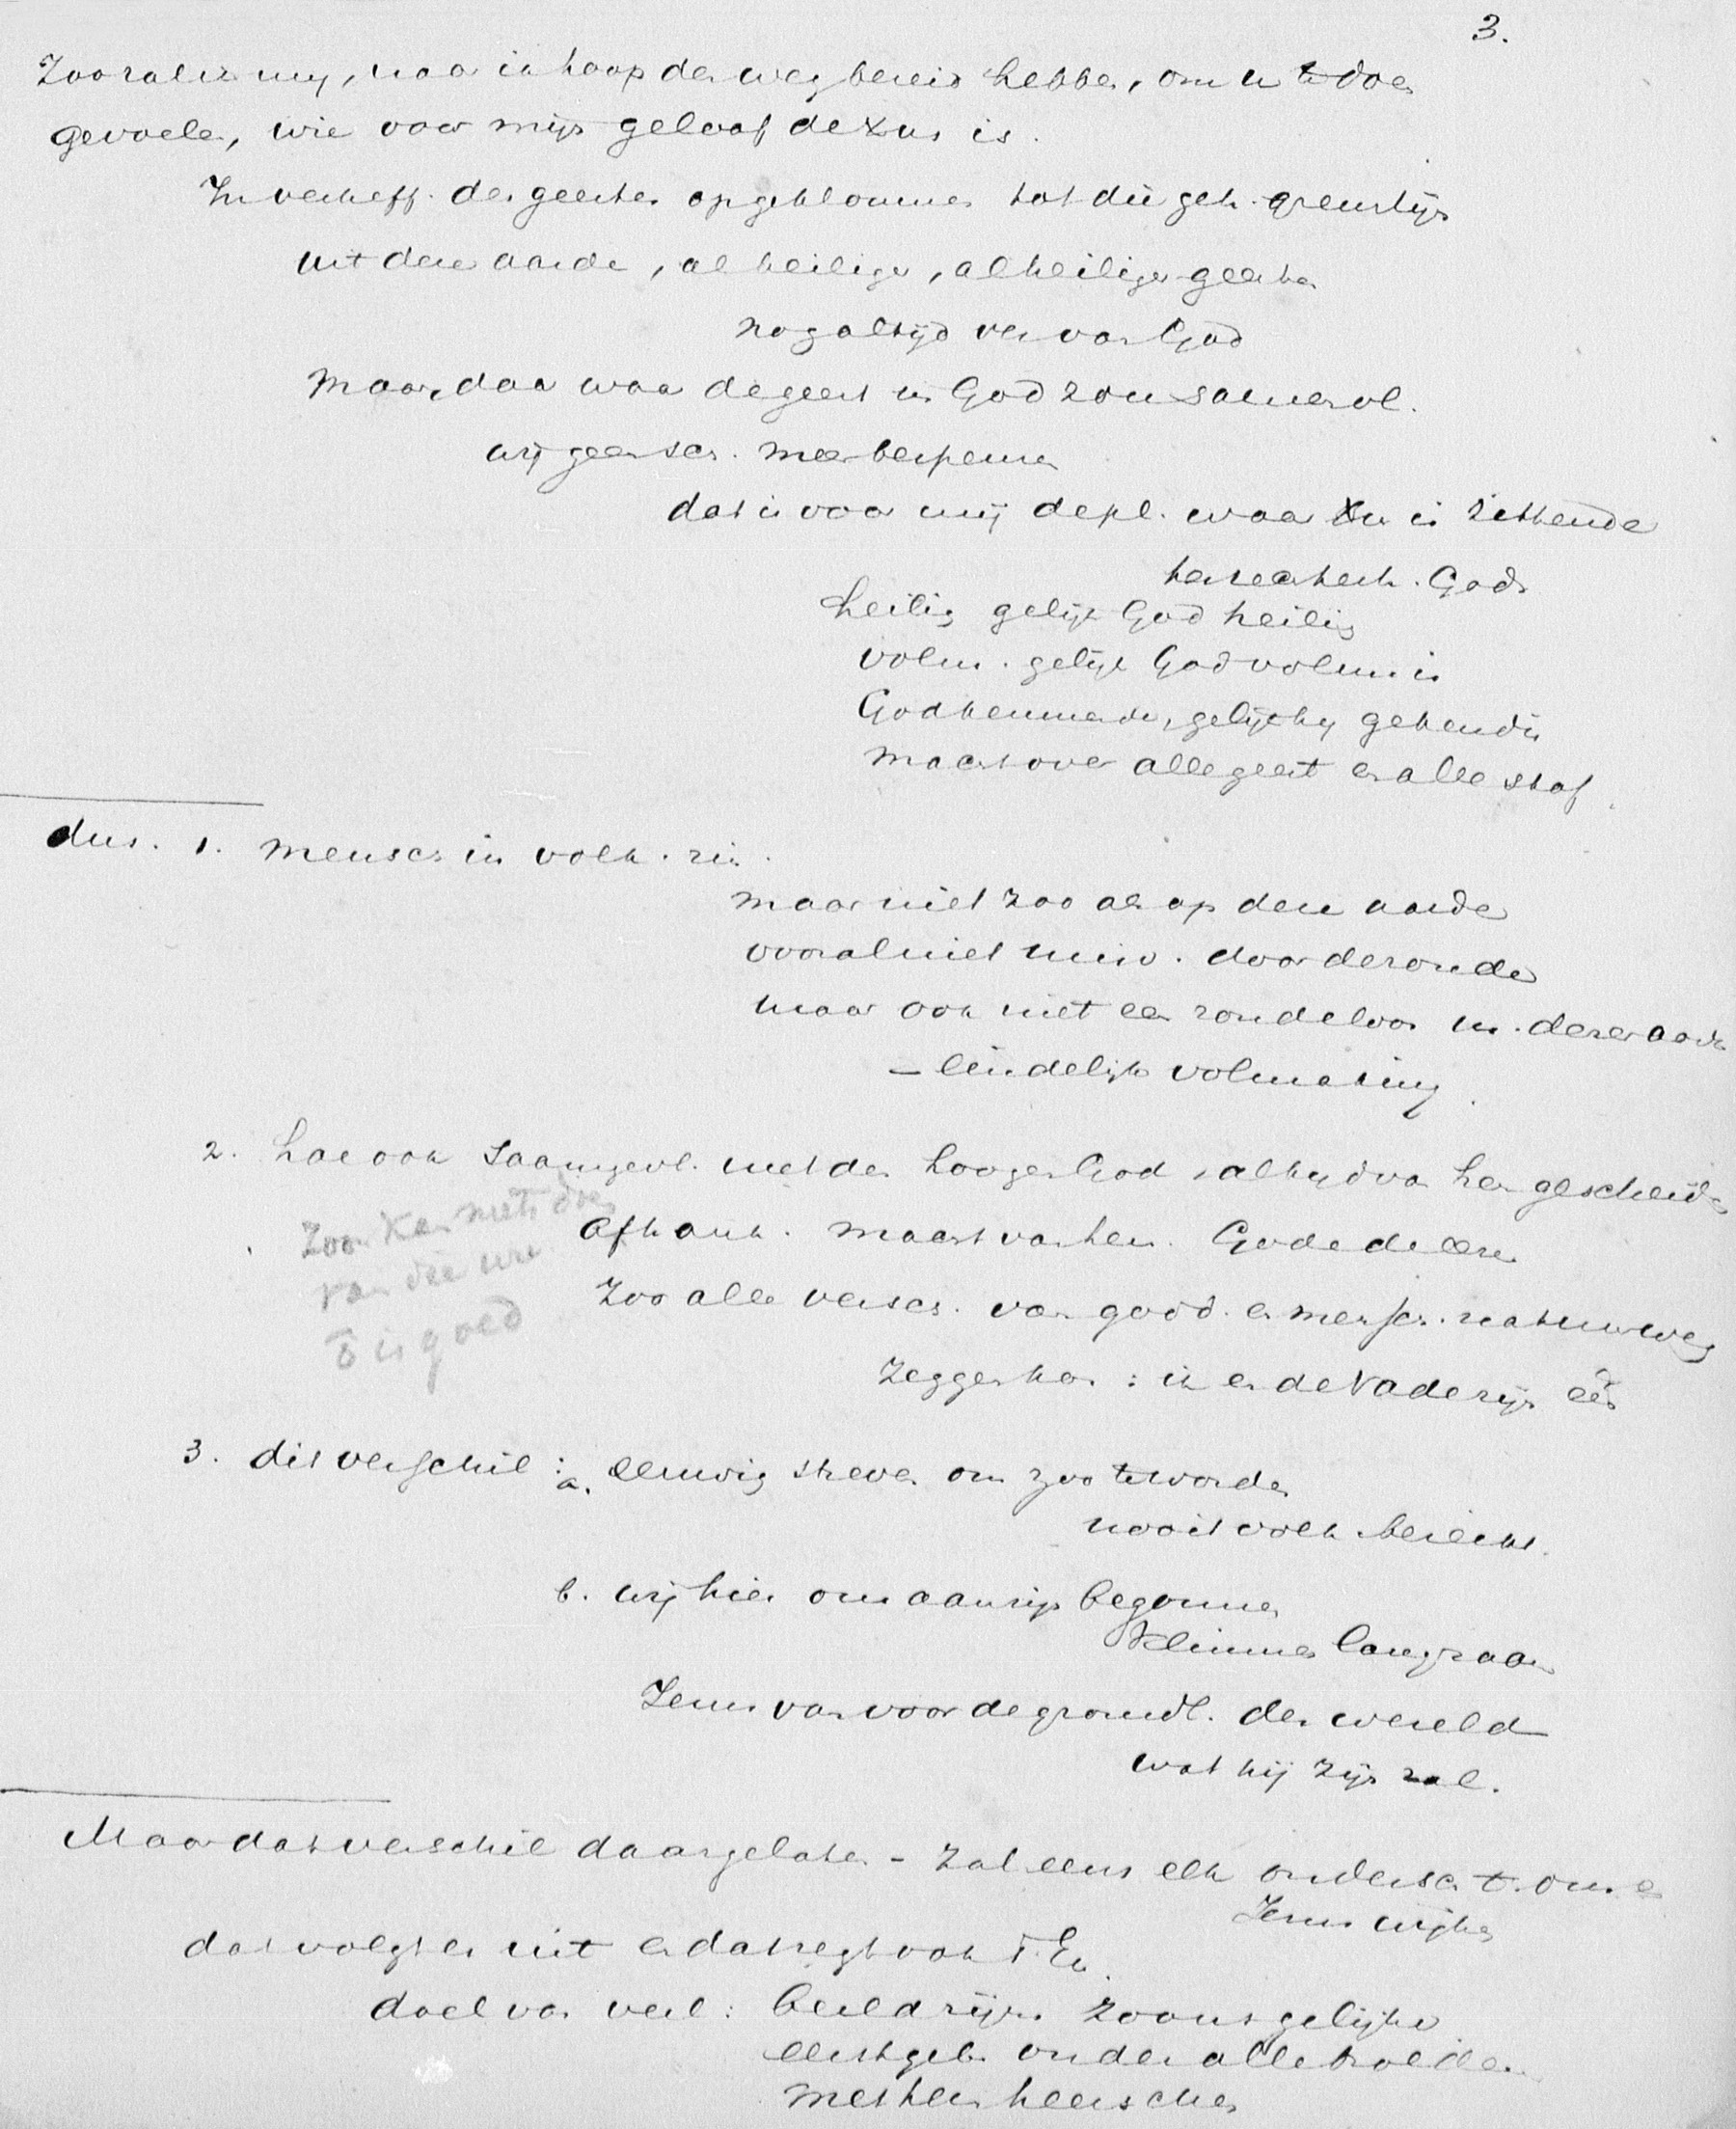 3.
Zooveel ik mij, naar ik hoop den weg bereid hebben, om u te doen
gevoelen, wie voor mijn geloof de Xus is.
In verheff. des geestes opgeklommen tot die geh. grenslijn
uit deze aarde, al heilige, al heiliger geesten
nog altijd ver van God
Maar, daar waar de geest in God zou samenvl.
wij geen sch. meer bespeuren
dat is voor mij de pl. waar Xus is zittende
ter rechterh. Gods
heilig gelijk God heilig
volm. gelijk God volm. is
God kennende, gelijk hij gekend is
macht over alle geest en alle stof.
dus. 1. mensch in volk. zin.
maar niet zoo als op deze aarde
vooral niet mis. door de zonde
maar ook niet een zondeloos m. dezer aarde
- eindelijke volmaking.
2. hoe ook saamgevl. met den hoogen God, altijd van hem gescheiden
afhank. macht van hem. Gode de eere
Zoon kan niets doen
van die ure
 is goed
Zoo alle versch. van godd. en mensch. natuur weg
zeggen kan: ik en de Vader zijn één
3. dit verschil:
a. eeuwig streven om zoo te worden
nooit volk. bereikt.
b. wij hier ons aanzijn begonnen
klimmen langzaam
Jezus van voor de grondl. der wereld
wat hij zijn zal.
Maar dat verschil daargelaten - zal eens elk ondersch. t. ons en
Jezus wijken
dat volgt er uit en dat zegt ook 't Ev.
doel van verl: beeld zijns Zoons gelijkv.
eerstgeb. onder alle broederen
met hem heerschen